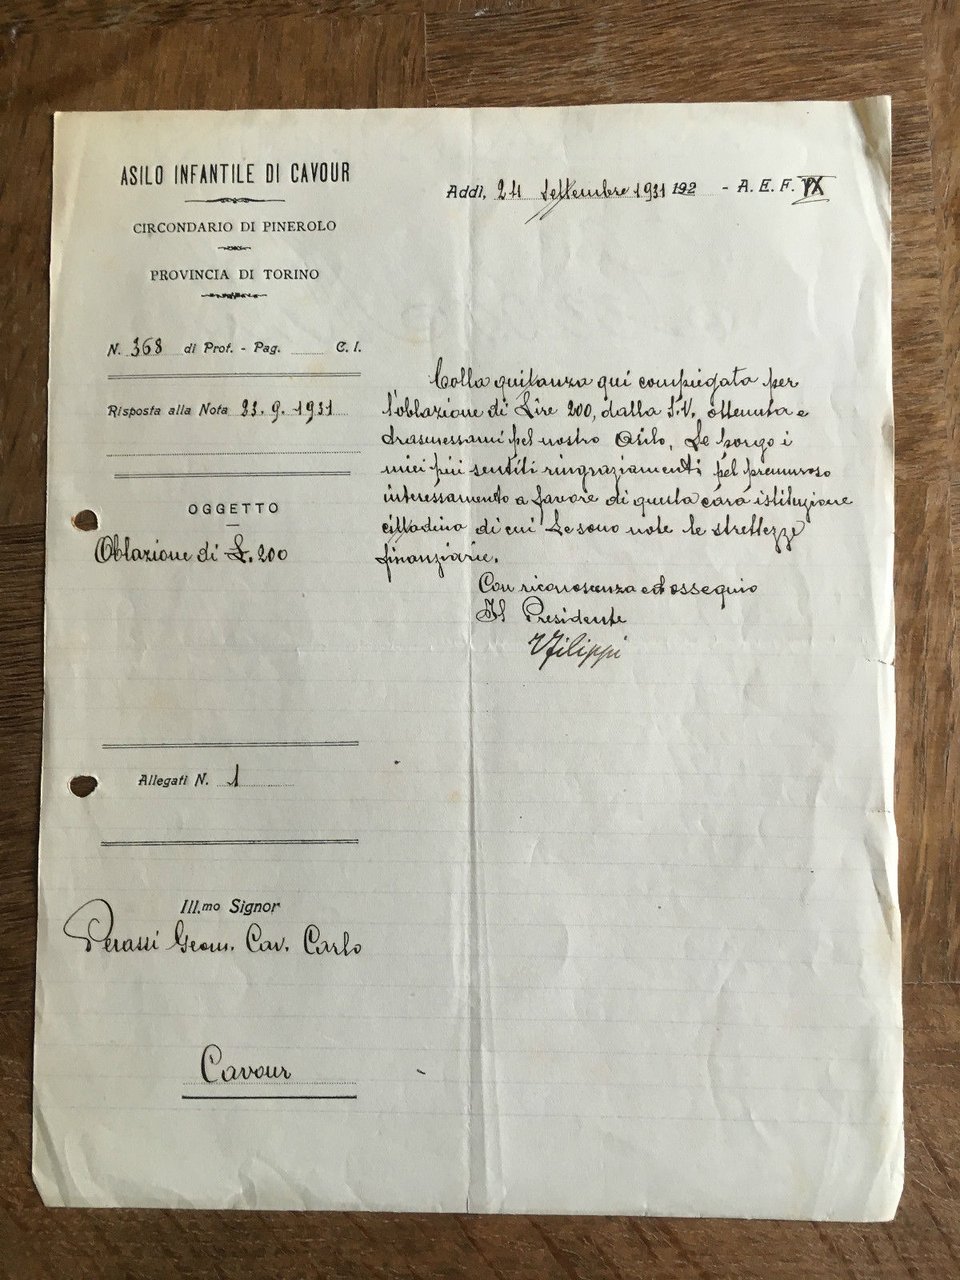 ASILO INFANTILE DI CAVOUR
CIRCONDARIO DI PINEROLO
PROVINCIA DI TORINO
Addì, 24 Settembre 1931 192 - A. E. F. IX
N. 368 di Prot. - Pag. C. I.
Risposta alla Nota 23.9.1931
OGGETTO
Oblazione di L. 200
Allegati N. 1
Ill.mo Signor
Perassi Geom. Cav. Carlo
Cavour
Colla quitanza qui compiegata per
l'oblazione di Lire 200, dalla S.V. ottenuta e
trasmessami pel nostro Asilo, Le porgo i
miei più sentiti ringraziamenti pel premuroso
interessamento a favore di questa cara istituzione
cittadina di cui Le sono note le strettezze
finanziarie.
Con riconoscenza ed ossequio
Il Presidente
Filippi